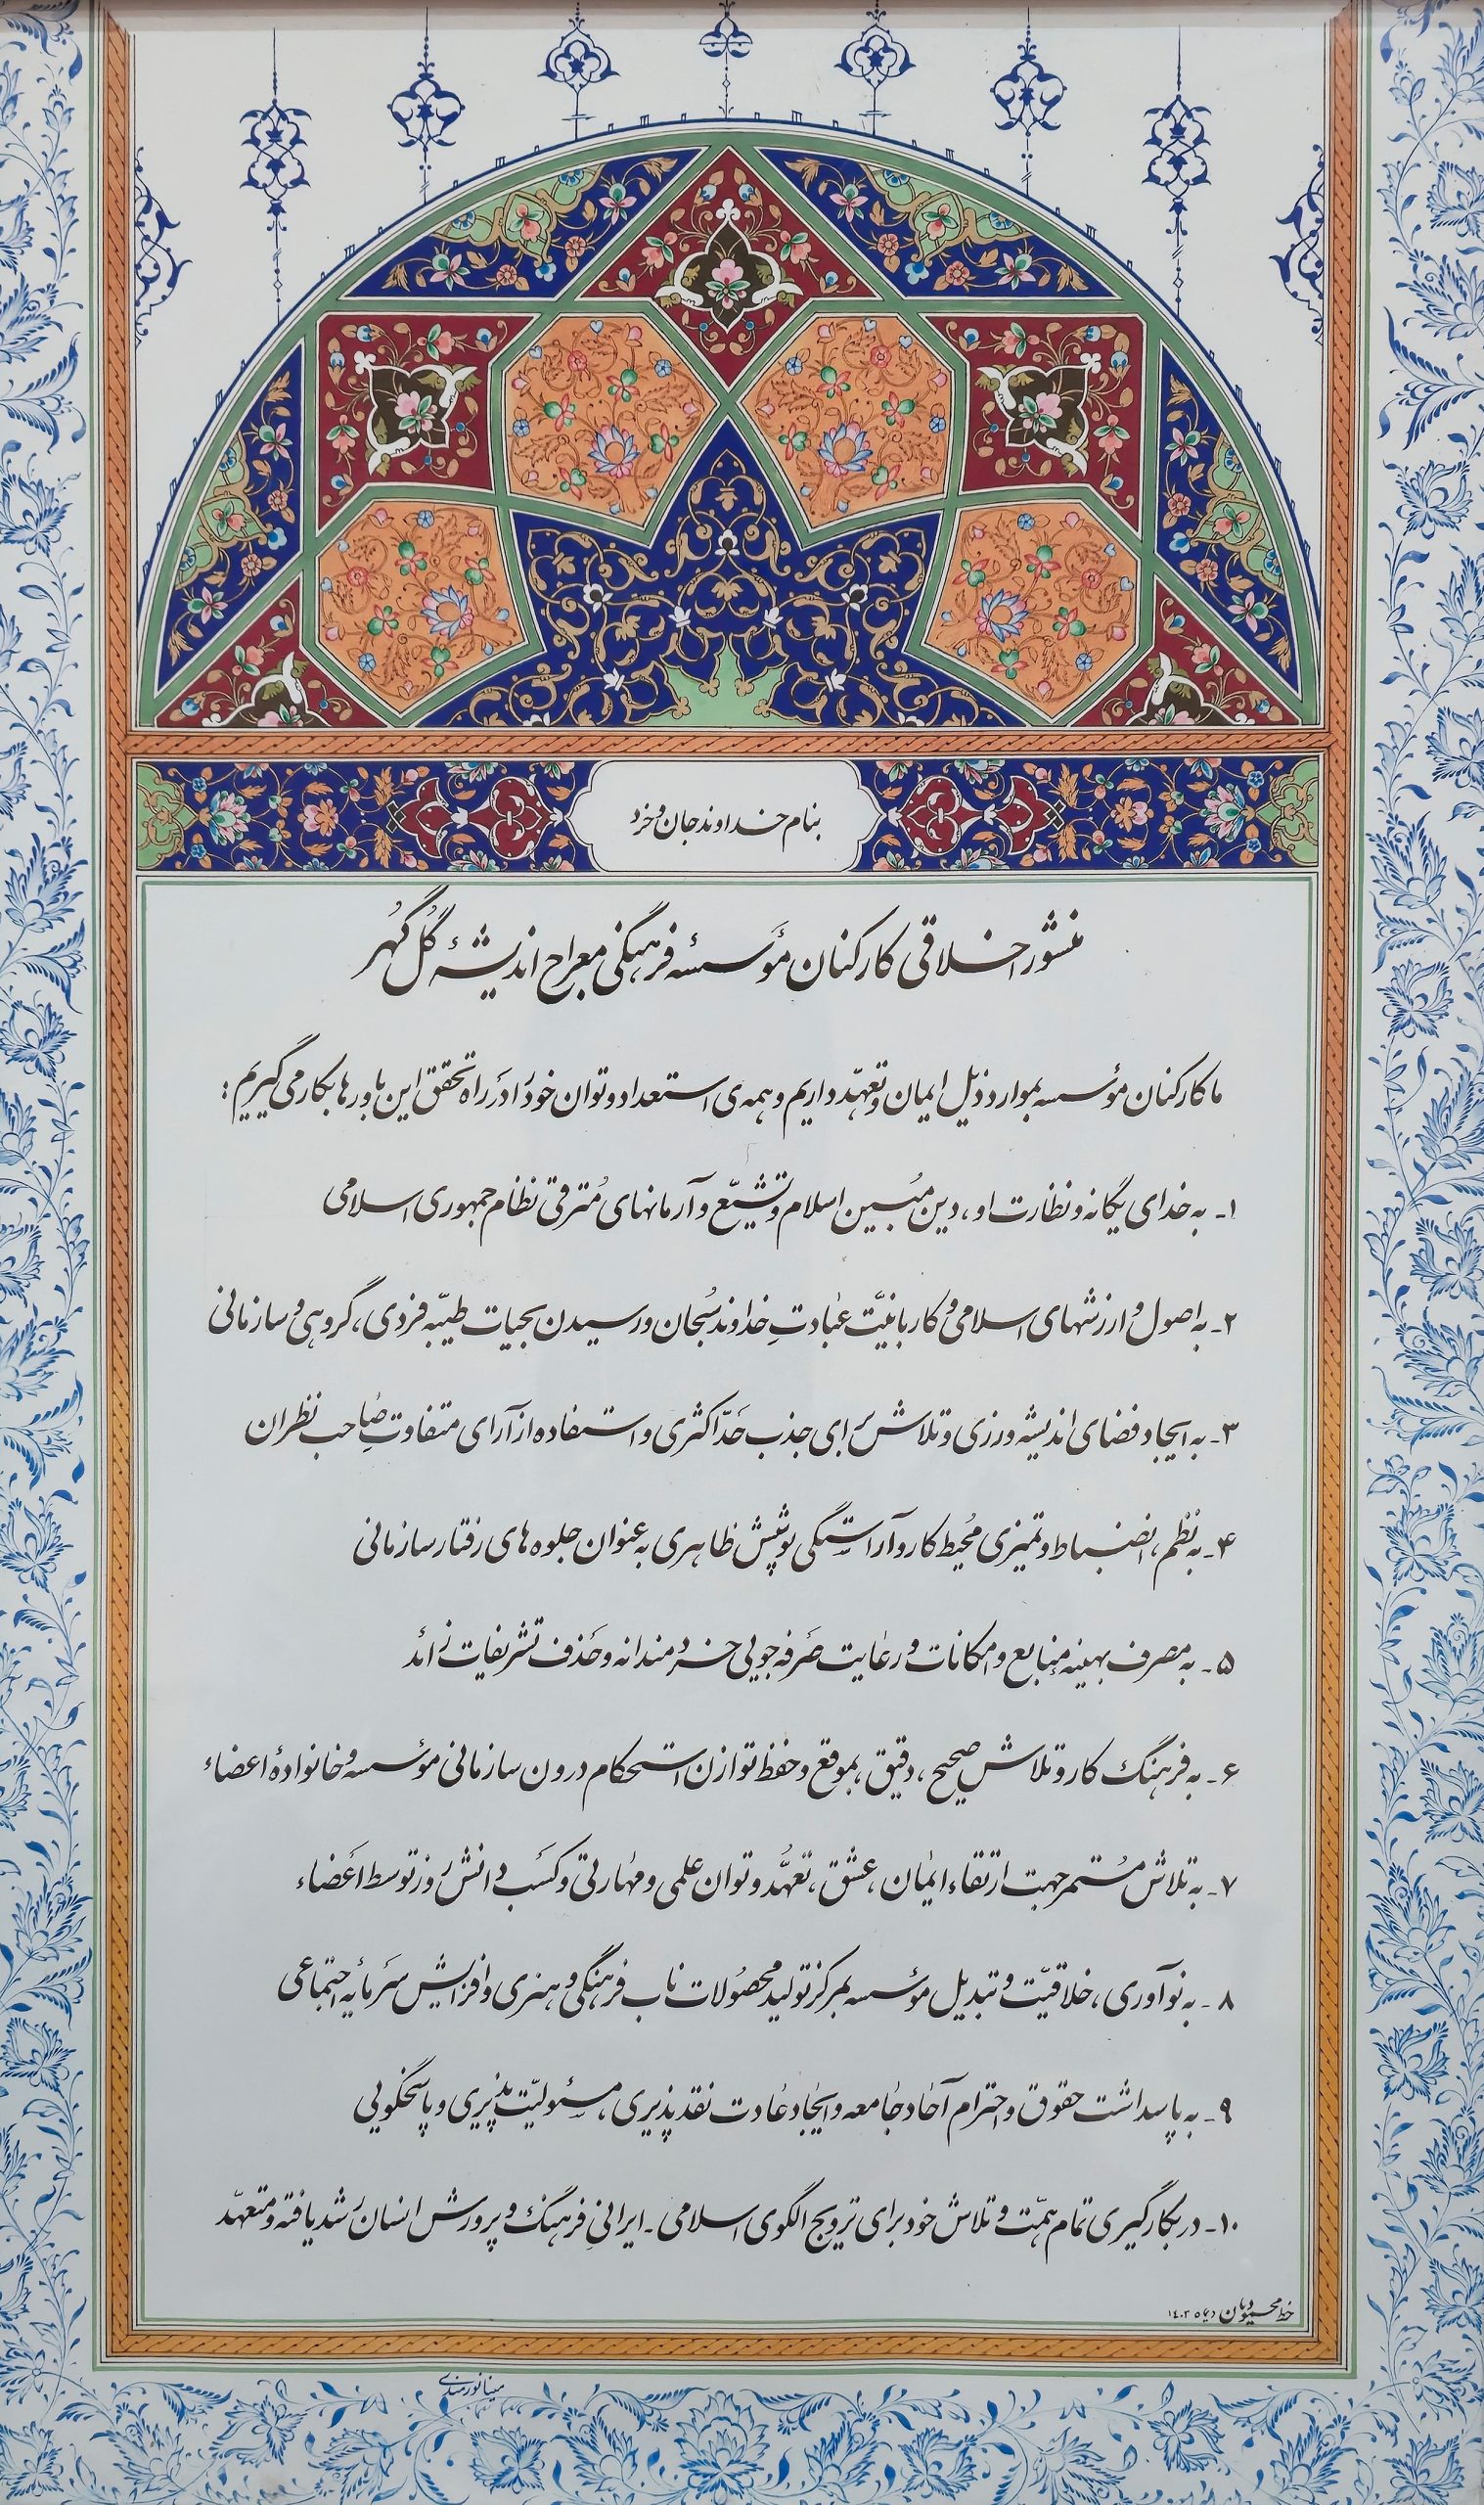 بنام خداوند جان و خرد
منشور اخلاقی کارکنان مؤسسهٔ فرهنگی معراج اندیشهٔ گل گُهر
ما کارکنان مؤسسه بموارد ذیل ایمان و تعهّد داریم و همه‌ی استعداد و توان خود را در راه تحقق این باورها بکار می‌گیریم :
۱- به خدای یگانه و نظارت او، دین مُبین اسلام و تشیّع و آرمانهای مُترقی نظام جمهوری اسلامی
۲- به اصول و ارزشهای اسلامی و کار با نیّت عبادتِ خداوند سُبحان و رسیدن بحیات طیّبه فردی، گروهی و سازمانی
۳- به ایجاد فضای اندیشه ورزی و تلاش برای جذب حَدّاکثری و استفاده از آرای متفاوتِ صاحب نظران
۴- به نظم، انضباط و تمیزی مُحیط کار و آراستگی پوشش ظاهری به عنوان جلوه های رفتار سازمانی
۵- به مصرف بهینه منابع و امکانات و رعایت صَرفه جویی خردمندانه و حَذف تشریفات زائد
۶- به فرهنگ کار و تلاش صحیح، دقیق، بموقع و حفظ توازن استحکام درون سازمانی مؤسسه و خانوادهٔ اعضاء
۷- به تلاش مُستمر جهت ارتقاء ایمان، عشق، تعهُّد و توان علمی و مهارتی و کسَب دانش روز توسط اعَضاء
۸- به نوآوری، خلاقیّت و تبدیل مؤسسه بمرکز تولید محصُولات ناب فرهنگی و هنری و افزایش سَرمایه اجتماعی
۹- به پاسداشت حقوق و احترام آحاد جامعه و ایجاد عادت نقدپذیری، مسئولیّت پذیری و پاسخگویی
۱۰- در بکارگیری تمام همّت و تلاش خود برای ترویج الگوی اسلامی - ایرانیِ فرهنگ و پرورش انسان رُشد یافته و متعهّد
خط دیماه ۱۴۰۲